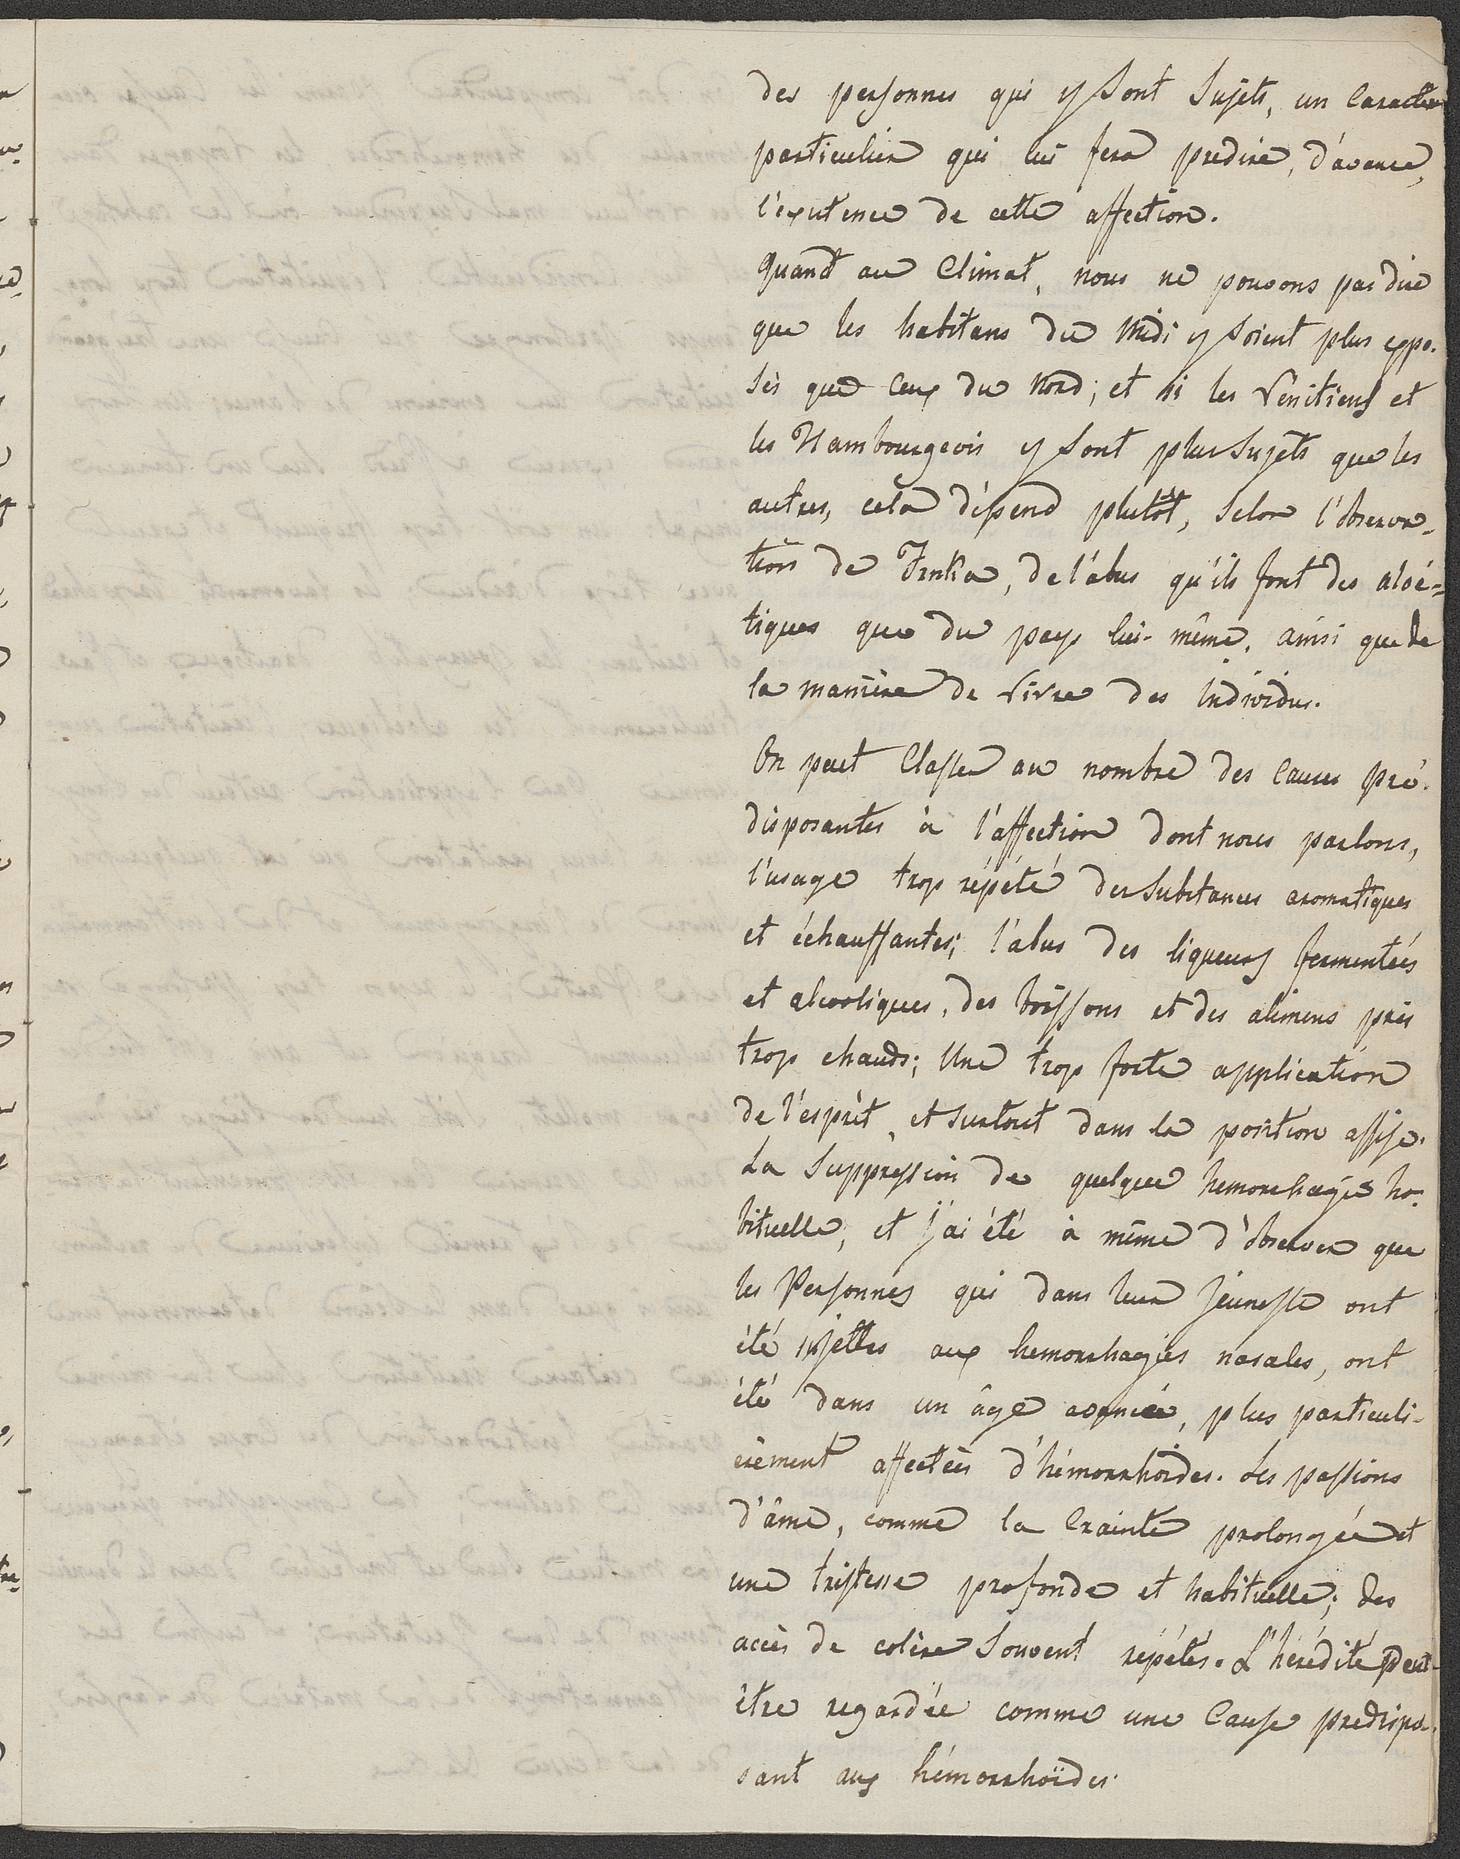 des personnes qui y sont sujets, un caractere
particulier qui lui fera predire, d'avance,
l'existence de cette affection.
Quand au Climat, nous ne pouvons pas dire
que les habitans du Midi y soient plus expo-
sés que ceux du Nord; et si les Vénitiens et
les Hambourgeois y sont plus sujets que les
autres, cela dépend plutôt, selon l'observa-
tion de , de l'abus qu'ils font des aloé-
tiques que du pays lui-même, ainsi que de
la manière de vivre des individus.
On peut Classer au nombre des Causes pré-
disposantes à l'affection dont nous parlons,
l'usage trop répété des substances aromatiques
et échauffantes; l'abus des liqueurs fermentées
et alcooliques, des boissons et des alimens pris
trop chauds; Une trop forte application
de l'esprit, et surtout dans la position assise.
La suppression de quelque hemorrhagie ha-
bituelle, et j'ai été à même d'observer que
les Personnes qui dans leur jeunesse ont
été sujettes aux hemorrhagies nasales, ont
été dans un âge avancé, plus particuli-
èrement affectées d'hémorrhoïdes. Les passions
d'âme, comme la Crainte prolongée et
une tristesse profonde et habituelle; des
accès de colère souvent répétés. L'hérédité peut
être regardée comme une Cause predispo-
sant aux hémorrhoïdes.